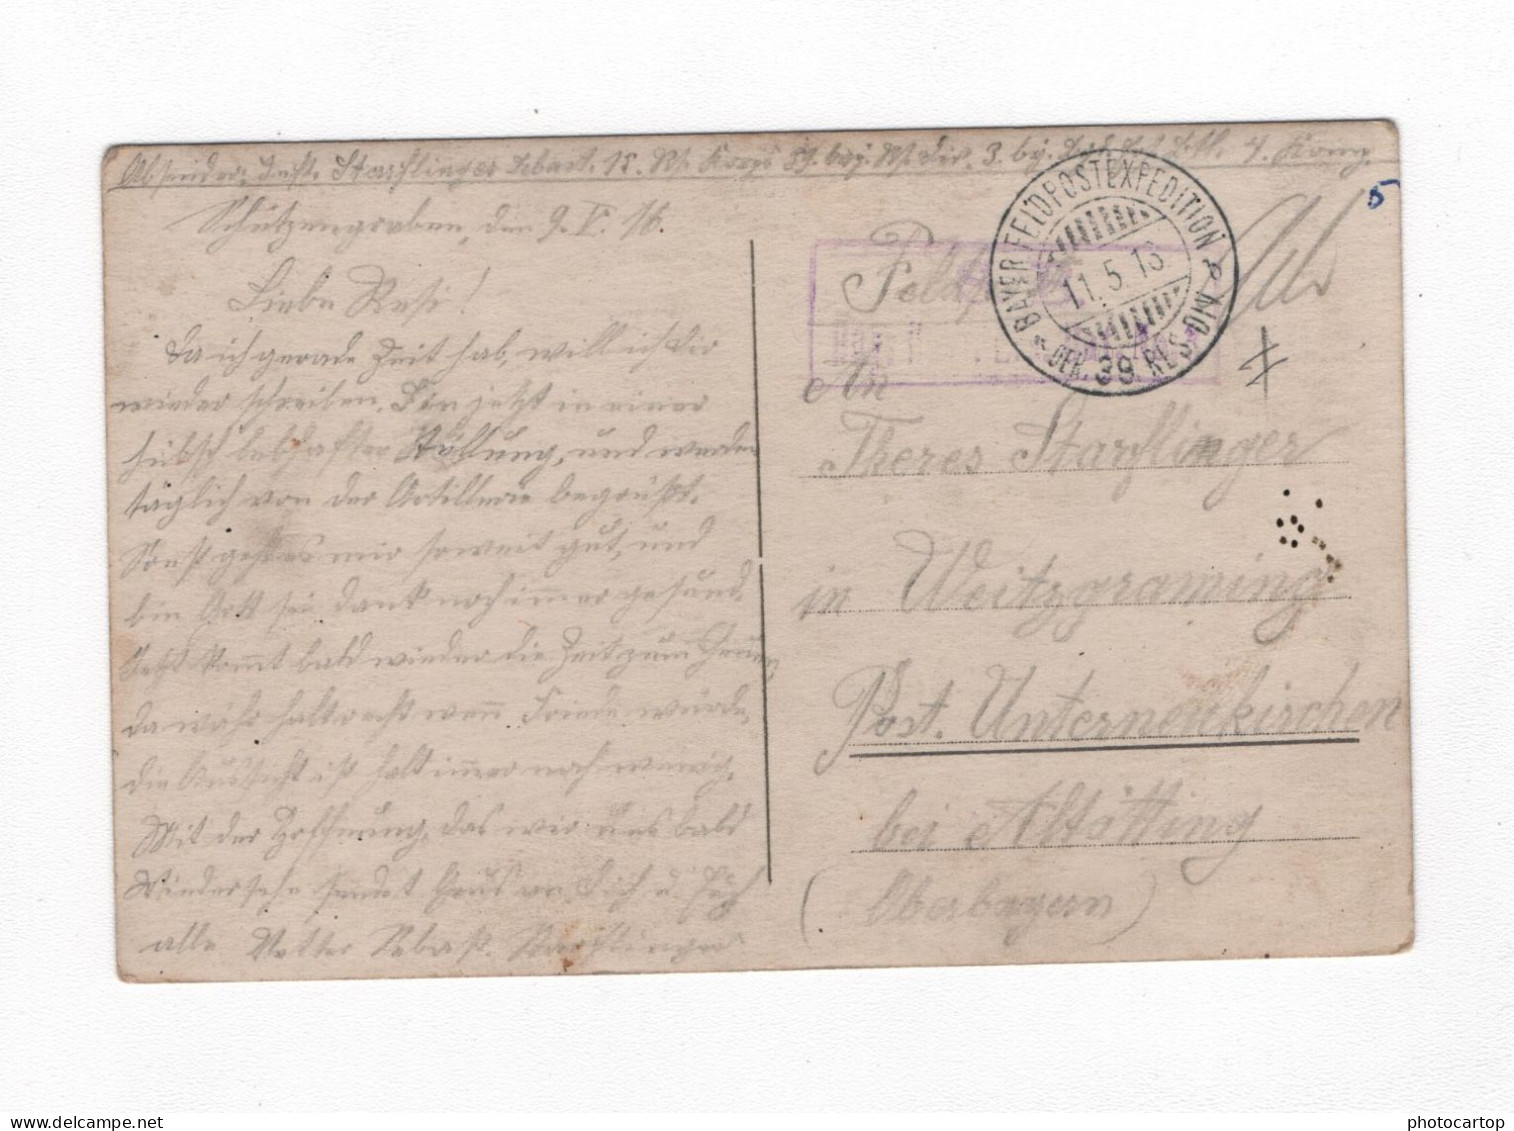 Absender: Inft. Starflinger Sebast. 15. Rs. Korps 39. bay. Rs. Div. 3. bay. 4. Komp.
Schützengraben, den 9. V. 16.
Liebe Resi!
Da ich gerade Zeit hab, will ich Dir
wieder schreiben. Bin jetzt in einer
hübsch lebhafter Stellung, und werden
täglich von der Artillerie begrüßt.
Sonst geht es mir soweit gut, und
bin Gott sei dank noch immer gesund.
Jetzt kommt bald wieder die Zeit zum Heuen
da wärs halt recht wenn Friede würde,
die Aussicht ist halt immer noch wenig.
Mit der Hoffnung, das wir uns bald
Wiedersehn sendet Grus an Dich u. Euch
alle Vetter Sebast. Starflinger
Feldpost
BAYER FELDPOSTEXPEDITION
11.5.16
DER. 39. RES. DIV.
5
An
Theres Starflinger
in Weitzgraming
Post. Unterneukirchen
bei Altötting
(Oberbayern)
photocartop
delcampe.net